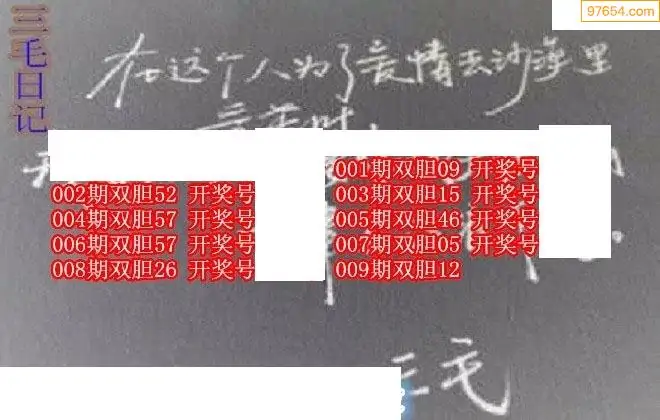 97654.com
三毛日记
在这个人为了爱情去沙漠里
001期双胆09 开奖号
002期双胆52 开奖号
003期双胆15 开奖号
004期双胆57 开奖号
005期双胆46 开奖号
006期双胆57 开奖号
007期双胆05 开奖号
008期双胆26 开奖号
009期双胆12
三毛